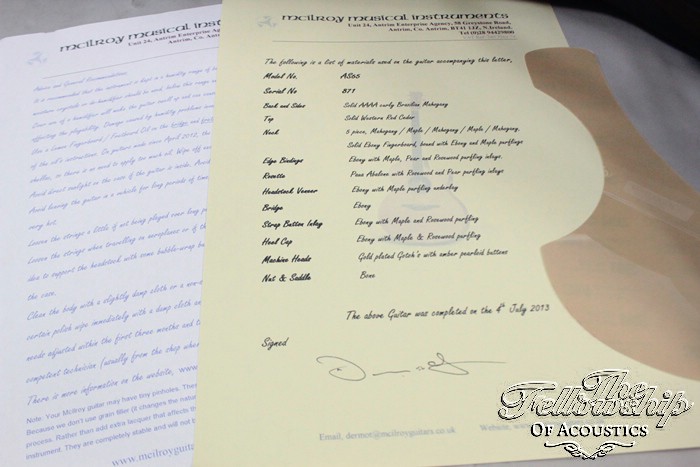 mcilroy musical instruments
Unit 24, Antrim Enterprise Agency, 58 Greystone Road,
Antrim, Co. Antrim, BT41 1JZ, N.Ireland.
The following is a list of materials used on the guitar accompanying this letter.
Model No. AS65
Serial No 871
Back and Sides Solid AAAA curly Brazilian Mahogany
Top Solid Western Red Cedar
Neck 5 piece, Mahogany / Maple / Mahogany / Maple / Mahogany.
Solid Ebony Fingerboard, bound with Ebony and Maple purflings
Edge Bindings Ebony with Maple, Pear and Rosewood purfling inlays.
Rosette Paua Abalone with Rosewood and Pear purfling inlays
Headstock Veneer Ebony with Maple purfling underlay
Bridge Ebony
Strap Button Inlay Ebony with Maple and Rosewood purfling
Heel Cap Ebony with Maple & Rosewood purfling
Machine Heads Gold plated Gotoh's with amber pearloid buttons
Nut & Saddle Bone
The above Guitar was completed on the 4th July 2013
Signed
Email, dermot@mcilroyguitars.co.uk Website,
mcilroy musical
Unit 24, Antrim Enterprise
Antrim, Co. Ant
Advice and General Recommendations:
It is recommended that the instrument is kept in a humidity range of
Use a Lemon Fingerboard / Fretboard Oil on the bridge and
Avoid direct sunlight on the case if the guitar is inside.
Avoid leaving the guitar in a vehicle for long periods of time
very hot.
Loosen the strings a little if not being played over long
Loosen the strings when travelling on aeroplanes or if th
idea to support the headstock with some bubble-wrap
the case.
Clean the body with a slightly damp cloth or a non-
certain polish wipe immediately with a damp cloth an
needs adjusted within the first three months and t
competent technician (usually from the shop where
There is more information on the website, www
Note: Your McIlroy guitar may have tiny pinholes. These
Because we don't use grain filler (it changes the natur
process. Rather than add extra lacquer that affects th
instrument. They are completely stable and will not
www.mcilroyguitars
The
Fellowship
Of Acoustics